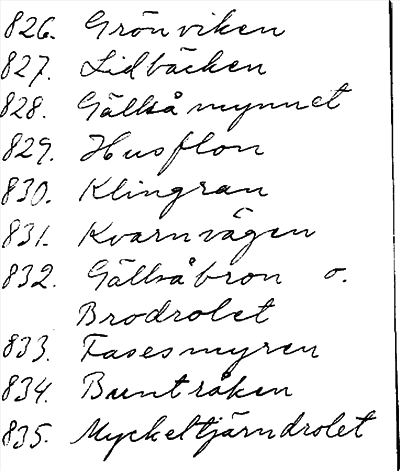 826. Grönviken
827. Lidbäcken
828. Gällsåmynnet
829. Husflon
830. Klingran
831. Kvarnvägen
832. Gällsåbron o.
Brodrolet
833. Fasesmyren
834. Buntråken
835. Myckeltjärndrolet